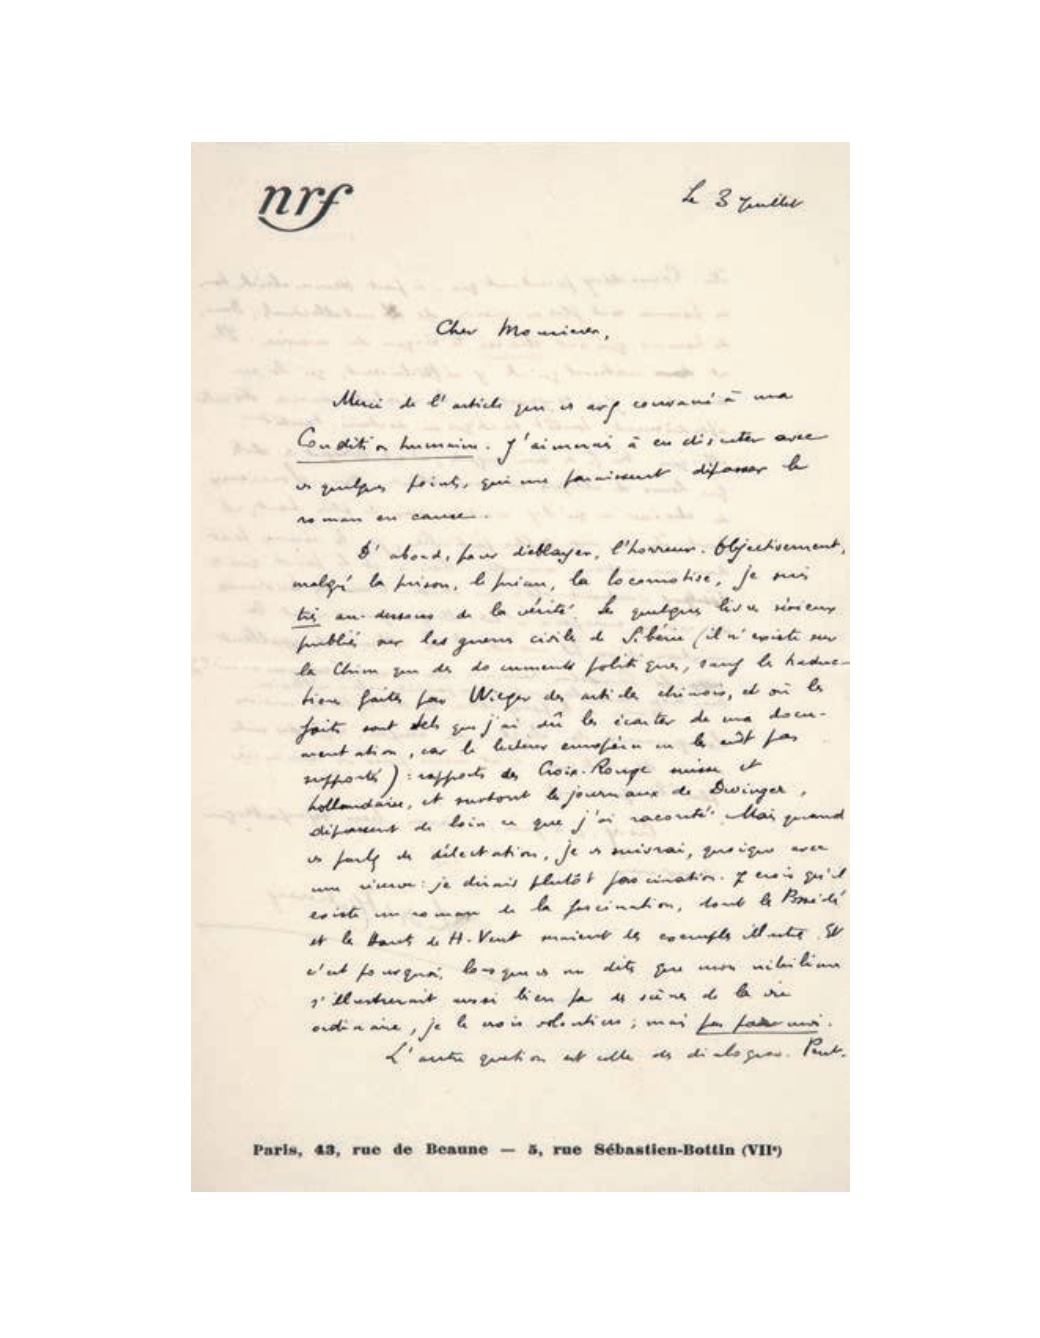 nrf
Le 3 juillet
Cher Monsieur,
Merci de l'article que vs avez consacré à ma
Condition humaine. J'aimerais à en discuter avec
vs quelques points, qui me paraissent dépasser le
roman en cause.
D'abord, pour déblayer, l'horreur. Objectivement,
malgré la prison, le préau, la locomotive, je suis
très au-dessous de la vérité. Les quelques livres sérieux
publiés sur les guerres civiles de Sibérie (il n'existe sur
la Chine que des documents politiques, sauf les traduc-
tions faites par Wieger des articles chinois, et où les
faits sont tels que j'ai dû les écarter de ma docu-
mentation, car le lecteur européen ne les eût pas
supportés) : rapports des Croix-Rouge suisse et
hollandaise, et surtout les journaux de Dwinger,
dépassent de loin ce que j'ai raconté. Mais quand
vs parlez de délectation, je vs suivrai, quoique avec
une réserve : je dirais plutôt fascination. Je crois qu'il
existe un roman de la fascination, dont les Possédés
et les Hauts de H-Vent seraient les exemples illustres. Et
c'est pourquoi, lorsque vs me dites que mon nihilisme
s'illustrerait aussi bien par des scènes de la vie
ordinaire, je le crois volontiers ; mais pas par moi.
L'autre question est celle des dialogues. Peut-
Paris, 43, rue de Beaune — 5, rue Sébastien-Bottin (VIIe)